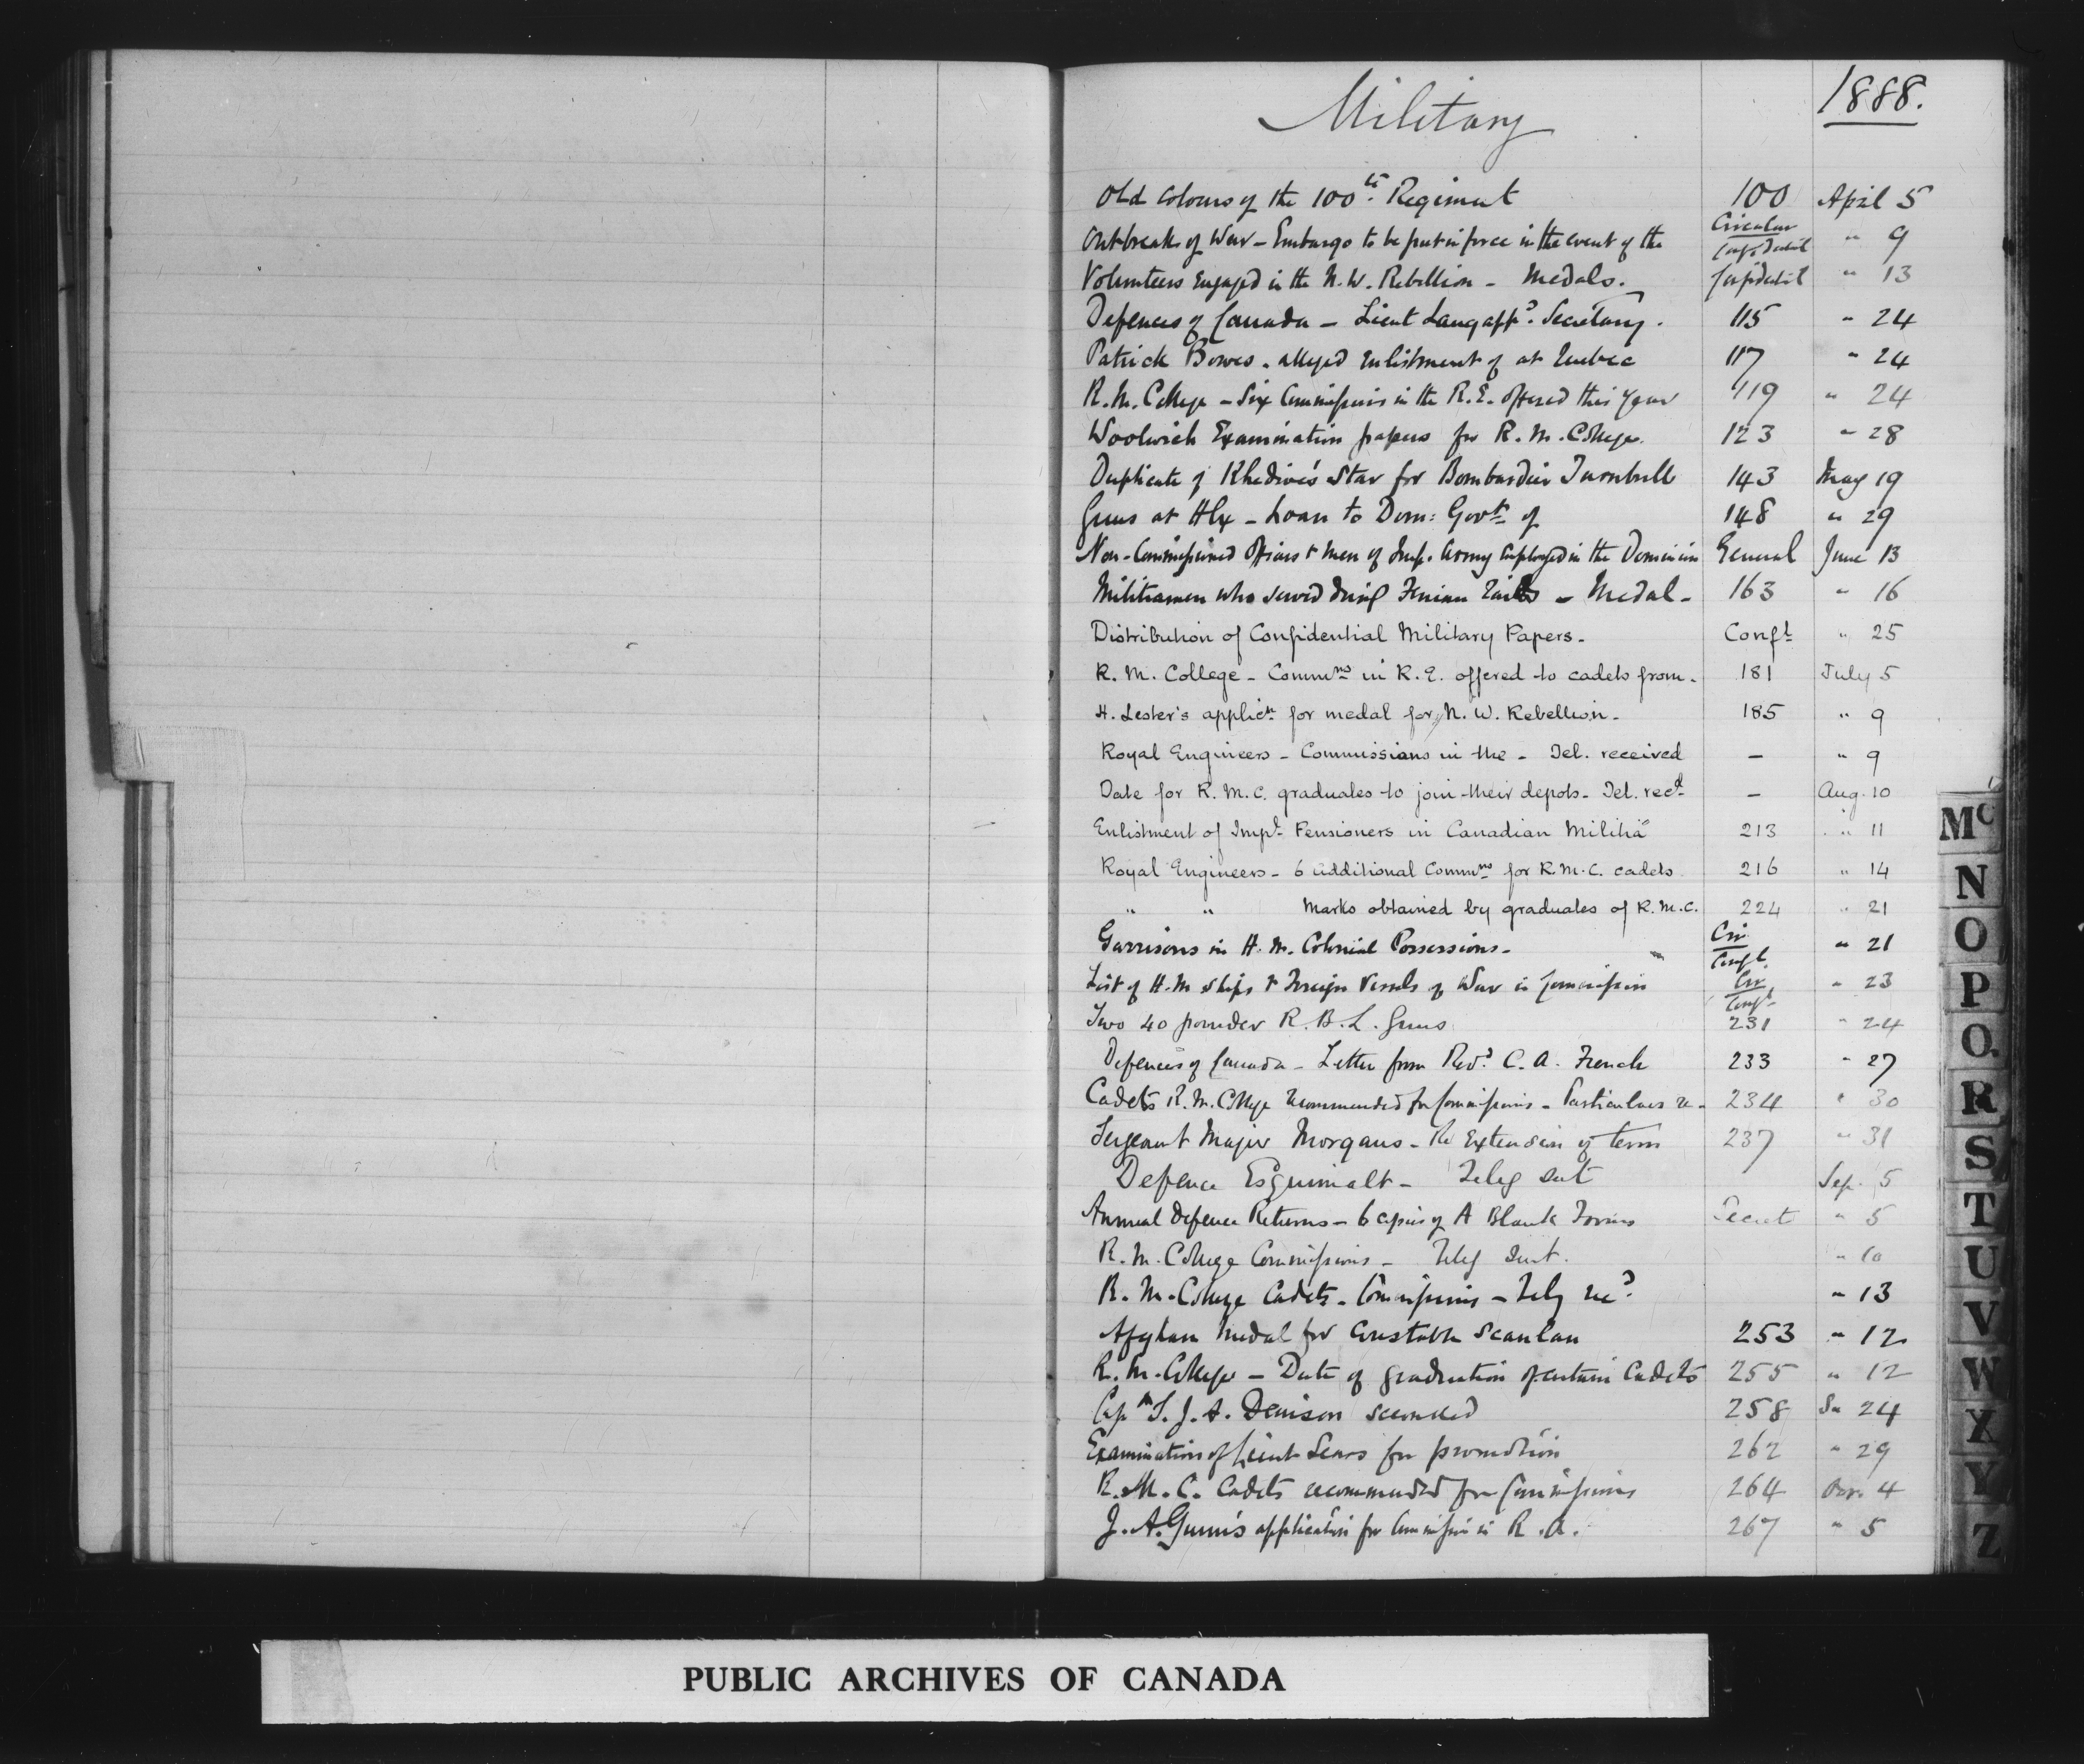 Military
1888.
Old Colours of the 100th Regiment 100 April 5
Outbreak of War - Embargo to be put in force in the event of the Circular Confidential " 9
Volunteers Engaged in the N.W. Rebellion - Medals. Confidential " 13
Defences of Canada - Lieut Lang appd. Secretary. 115 " 24
Patrick Bowes. alleged enlistment of at Quebec 117 " 24
R.M. College - Six Commissions in the R.E. offered this year 119 " 24
Woolwich Examination papers for R.M. College. 123 " 28
Duplicate of Khedive's Star for Bombardier Turnbull 143 May 19
Guns at Hfx - Loan to Dom: Govt. of 148 " 29
Non-Commissioned Officers & Men of Imp. Army employed in the Dominion General June 13
Militiamen who served during Fenian Raids - Medal - 163 " 16
Distribution of Confidential Military Papers - Conft " 25
R.M. College - Commns in R.E. offered to cadets from. 181 July 5
H. Lester's applicn for medal for N.W. Rebellion. 185 " 9
Royal Engineers - Commissions in the - Tel. received - " 9
Date for R.M.C. graduates to join their depots - Tel. recd - Aug. 10
Enlistment of Impl. Pensioners in Canadian Militia 213 " 11
Royal Engineers - 6 additional Commns for R.M.C. cadets 216 " 14
" " Marks obtained by graduates of R.M.C. 224 " 21
Garrisons in H.M. Colonial Possessions - Cir Confl. " 21
List of H.M ships & Foreign Vessels of War in Commission Cir Confl " 23
Two 40 pounder R.B.L. Guns 231 " 24
Defences of Canada - Letter from Revd. C.A. French 233 " 27
Cadets R.M. College recommended for Commissions - Particulars re - 234 " 30
Sergeant Major Morgans - Re Extension of term 237 " 31
Defence Esquimalt - Teleg sent Sep. 5
Annual Defence Returns - 6 copies of A Blank Forms Secret " 5
R.M. College Commissions - Teleg sent. " 10
R.M. College Cadets - Commissions - Teleg recd. " 13
Afghan Medal for Constable Scanlan 253 " 12
R.M. College - Date of graduation of certain Cadets 255 " 12
Capn S.J.A. Denison seconded 258 Se 24
Examination of Lieut Sears for promotion 262 " 29
R.M.C. Cadets recommended for Commissions 264 Oct. 4
J.A. Gunn's application for Commission in R.A. 267 " 5
Mc
N
O
P
Q.
R
S
T
U
V
W
X
Y
Z
PUBLIC ARCHIVES OF CANADA